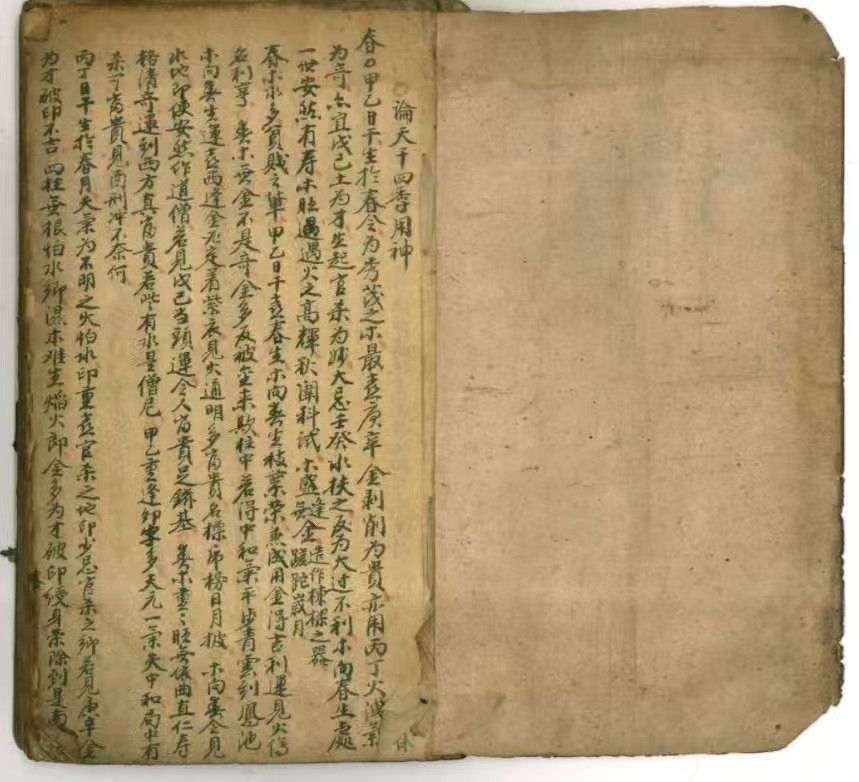 論天干四季用神
春○甲乙日干生扵春令為秀茂之木最喜庚辛金剥削為貴亦用丙丁火洩葉
為奇亦宜戊己土為才生起官杀為妙大忌壬癸水扶之反為大过不利木向春生處
一世安然有寿木旺遇遇火之高輝秋闈科试木盛逢金造作棟樑之器無金蹉跎嵗月
春木水多貧賤之軰甲乙日干喜春生木向春生枝葉荣煞成用金得吉利運見火傷
名利亨春木無金不是奇金多反被金来欺柱中若得中和氣平步青雲到鳳池
木向春生運喜西逢金必定着紫衣見火通明多富貴名標帝榜日月披木向春令見
水地印便安然作道僧若見戊己当頭運令人富貴足鎡基春木畫〻旺無依曲直仁寿
格清奇運到西方真富貴若些有水是僧尼甲乙重逢卯字多天元一氣失中和局中有
杀可富貴見酉刑冲不奈何
丙丁日干生扵春月天氣為不明之火怕水印重喜官杀之地印少忌官杀之鄉若見庚辛金
为才破印不吉四柱無根怕水鄉濕木难生焰火即金多为才破印綬身杀除到是南